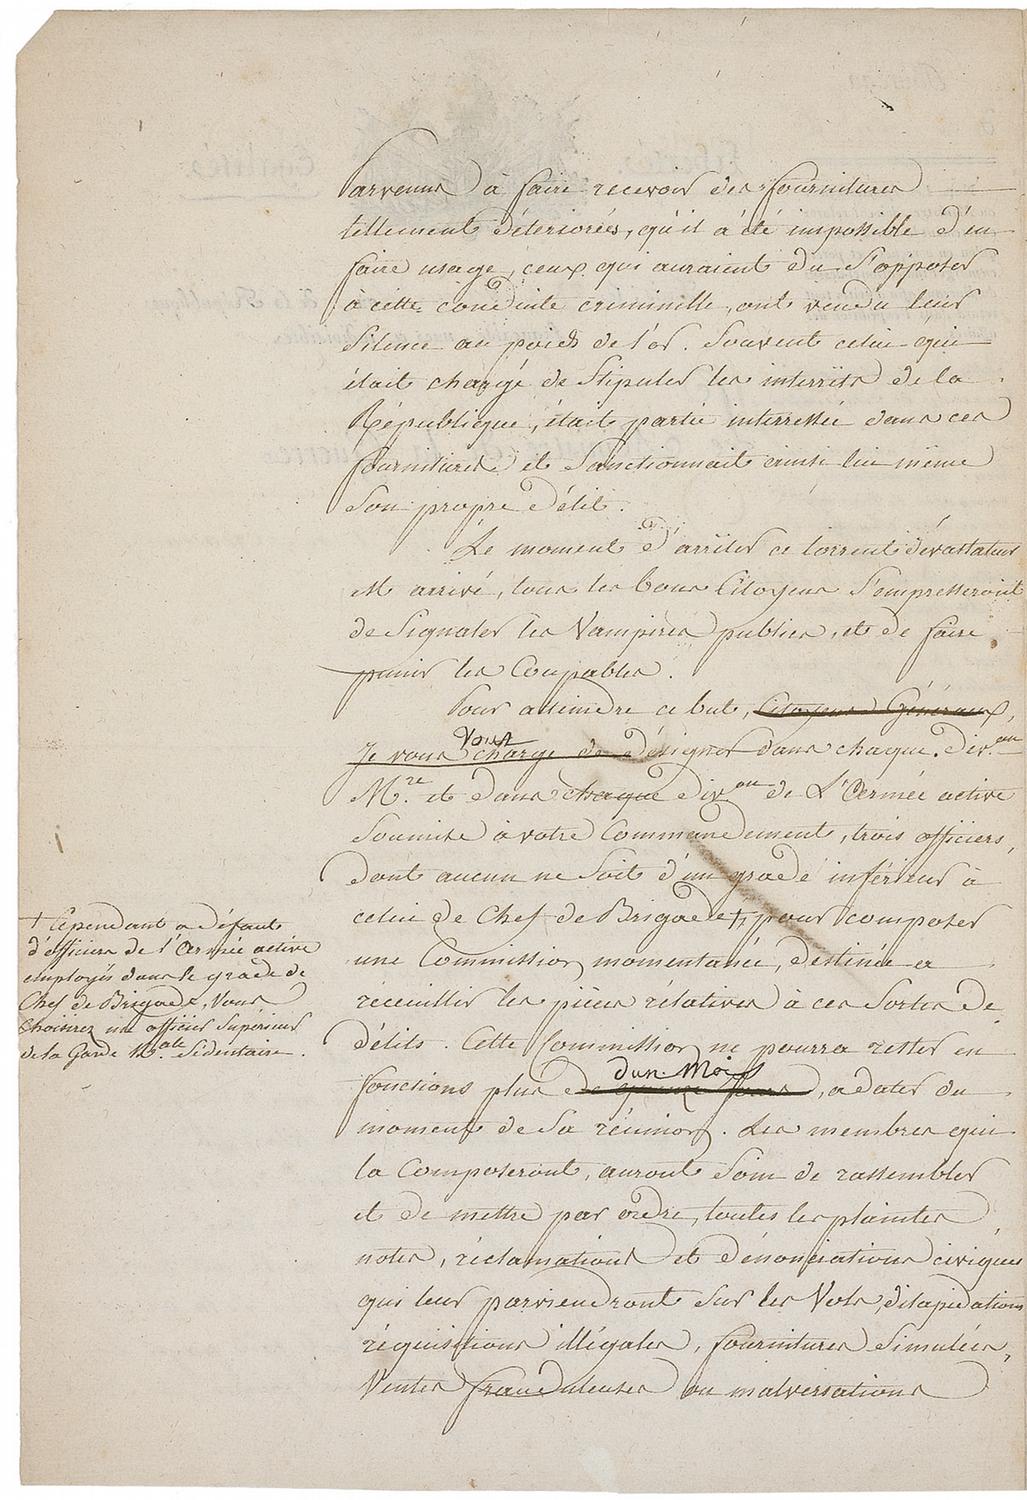 parvenus à faire recevoir des fournitures
tellement déteriorées, qu'il a été impossible d'en
faire usage, ceux qui auraient du s'opposer
à cette conduite criminelle, ont vendu leur
silence au poids de l'or. Souvent celui qui
était chargé de stipuler les interrêts de la
République, était partie interressée dans ces
fournitures et sanctionnait ainsi lui même
son propre délit.
Le moment d'arrêter ce torrent dévastateur
est arrivé, tous les bons Citoyens s'empresseront
de signaler les Vampires publics, et de faire
punir les Coupables.
Pour atteindre ce but, Citoyens Généraux,
Vous
Je vous charge de désigner dans chaque div.on
M.re et dans chaque div.on de L'Armée active
soumise à votre Commandement, trois officiers,
dont aucun ne soit d'un grade inférieur à
celui de Chef de Brigade +, pour composer
une Commission momentanée, destinée a
réceuillir les pièces rélatives à ces sortes de
délits. Cette Commission ne pourra rester en
d'un Mois
fonctions plus de quinze jours, a dater du
moment de sa réunion. Les membres qui
la Composeront, auront soin de rassembler
et de mettre par ordre, toutes les plaintes,
notes, réclamations et dénonciations civiques
qui leur parviendront sur les Vols, dilapidations
réquisitions illégales, fournitures simulées,
Ventes frauduleuses ou malversations
+ Cependant a défaut
d'officiers de l'Armée active
employés dans le grade de
Chef de Brigade, Vous
Choisirez un officier Supérieur
de la Garde N.ale Sédentaire.